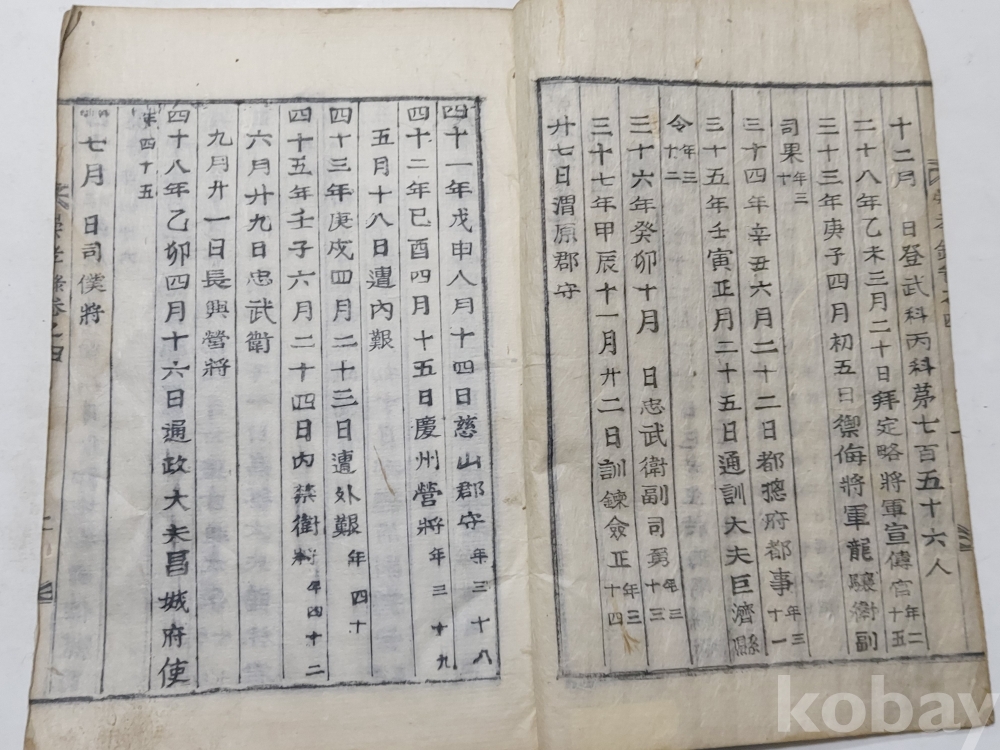 十二月　日登武科丙科第七百五十六人
二十八年乙未三月二十日拜定略將軍宣傳官年二十五
三十三年庚子四月初五日禦侮將軍龍驤衛副
司果年三十
三十四年辛丑六月二十二日都摠府都事年三十一
三十五年壬寅正月二十五日通訓大夫巨濟縣
令年三十二
三十六年癸卯十月　日忠武衛副司勇年三十三
三十七年甲辰十一月廿二日訓鍊僉正年三十四
廿七日渭原郡守
四十一年戊申八月十四日慈山郡守年三十八
四十二年己酉四月十五日慶州營將年三十九
五月十八日遭內艱
四十三年庚戌四月二十三日遭外艱年四十
四十五年壬子六月二十四日內禁衛將年四十二
六月廿九日忠武衛
九月廿一日長興營將
四十八年乙卯四月十六日通政大夫昌城府使
年四十五
七月　日司僕將
卷之四
kobay